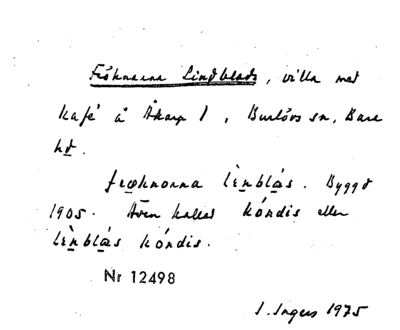 Fröknarna Lindblads, villa med
kafé å Åkarp 1, Burlövs sn, Bara
hd.
frøknonna lènblás. Byggd
1905. Även kallad kóndis eller
lènblás kóndis.
Nr 12498
I. Ingers 1975